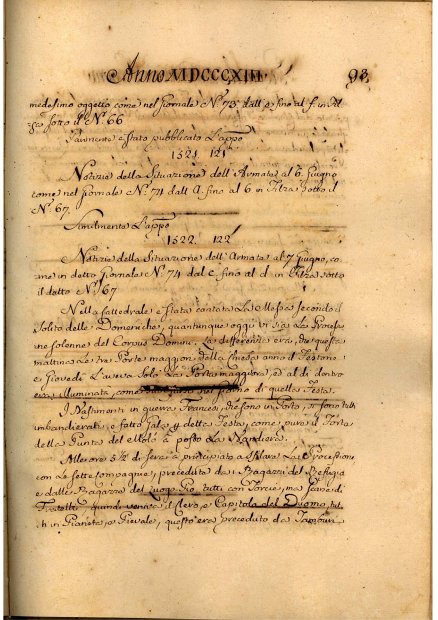 Anno MDCCCXIII. 93
medesimo oggetto come nel Giornale N.° 73 dall' e fino al f in Fil-
za sotto il N.° 66
Parimente è stato pubblicato L'appo
1521 121
Notizie della Situazione dell' Armata al 6. Giugno
come nel Giornale N.° 74 dall A. fino al 6 in Filza sotto il
N.° 67.
Similmente L'appo
1522. 122
Notizie della Situazione dell' Armata al 7 Giugno, co-
me in detto Giornale N.° 74 dal c fino al d in Filza sotto
il detto N.° 67
Nella Cattedrale è stata cantata La Messa secondo il
Solito delle Domeniche, quantunque oggi vi sia La Proces-
ne solenne del Corpus Domini. La differenza era, che questa
mattina Le tre Porte maggiori della Chiesa
e Giovedì L'aveva Solo La Porta maggiore, e al di dentro
era illuminata, come giorno di quella Festa.
I Bastimenti in guerra Francesi, che sono in Porto, si sono tutti
imbandierati, e fatto Gala della Festa, come pure il Forte
della Punta del Molo à posto La Bandiera.
Alle ore 5½ di sera à principiato a sfilare La Processione
con Le Sette Compagnie, preceduta da i Ragazzi del Refugio
e dalli Ragazzi del Luogo Pio tutti con Torcie, ma scarse di
Fratelli, quindi veniva il Clero, e Capitolo del Duomo, tut-
ti in Pianeta, o Pievale, questo era preceduto da Tamburi